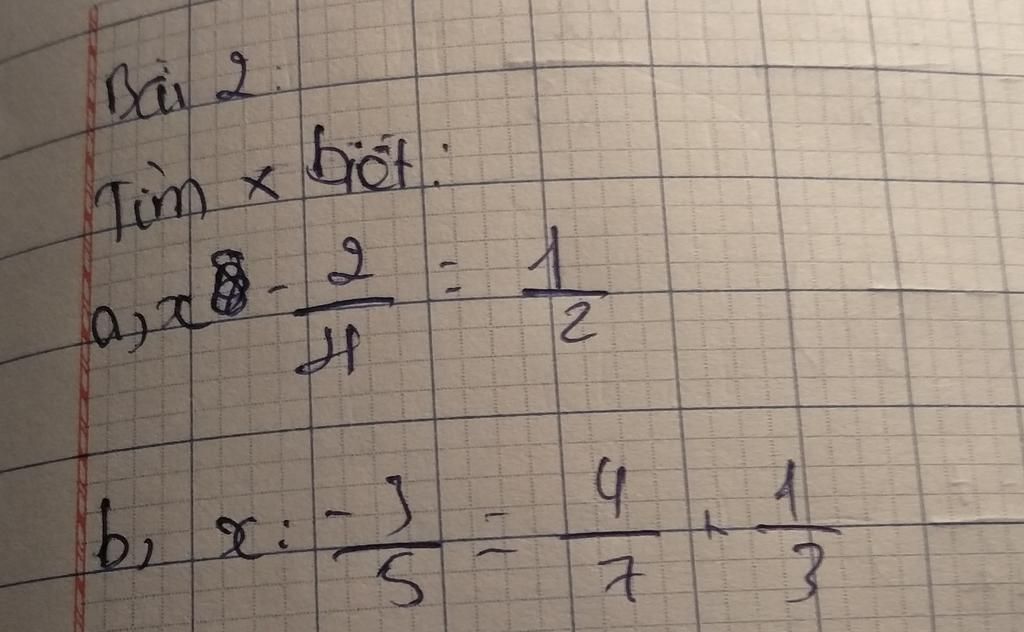 Bài 2:
Tìm x biết:
a, x - 2/4 = 1/2
b, x : -3/5 = 4/7 + 1/3